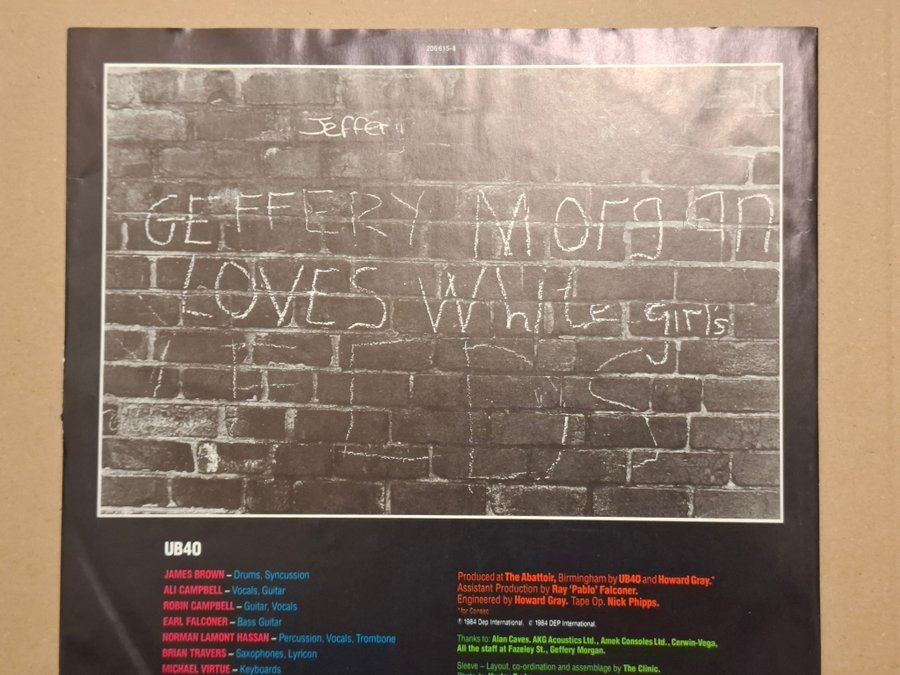 206 615-8
Jeffer
GEFFERY Morgan
LOVES White Girl's
UB40
JAMES BROWN – Drums, Syncussion
ALI CAMPBELL – Vocals, Guitar
ROBIN CAMPBELL – Guitar, Vocals
EARL FALCONER – Bass Guitar
NORMAN LAMONT HASSAN – Percussion, Vocals, Trombone
BRIAN TRAVERS – Saxophones, Lyricon
MICHAEL VIRTUE – Keyboards
Produced at The Abattoir, Birmingham by UB40 and Howard Gray.*
Assistant Production by Ray 'Pablo' Falconer.
Engineered by Howard Gray. Tape Op. Nick Phipps.
*for Consec
℗ 1984 Dep International. © 1984 DEP International.
Thanks to: Alan Caves. AKG Acoustics Ltd., Amek Consoles Ltd., Cerwin-Vega,
All the staff at Fazeley St., Geffery Morgan.
Sleeve – Layout, co-ordination and assemblage by The Clinic.